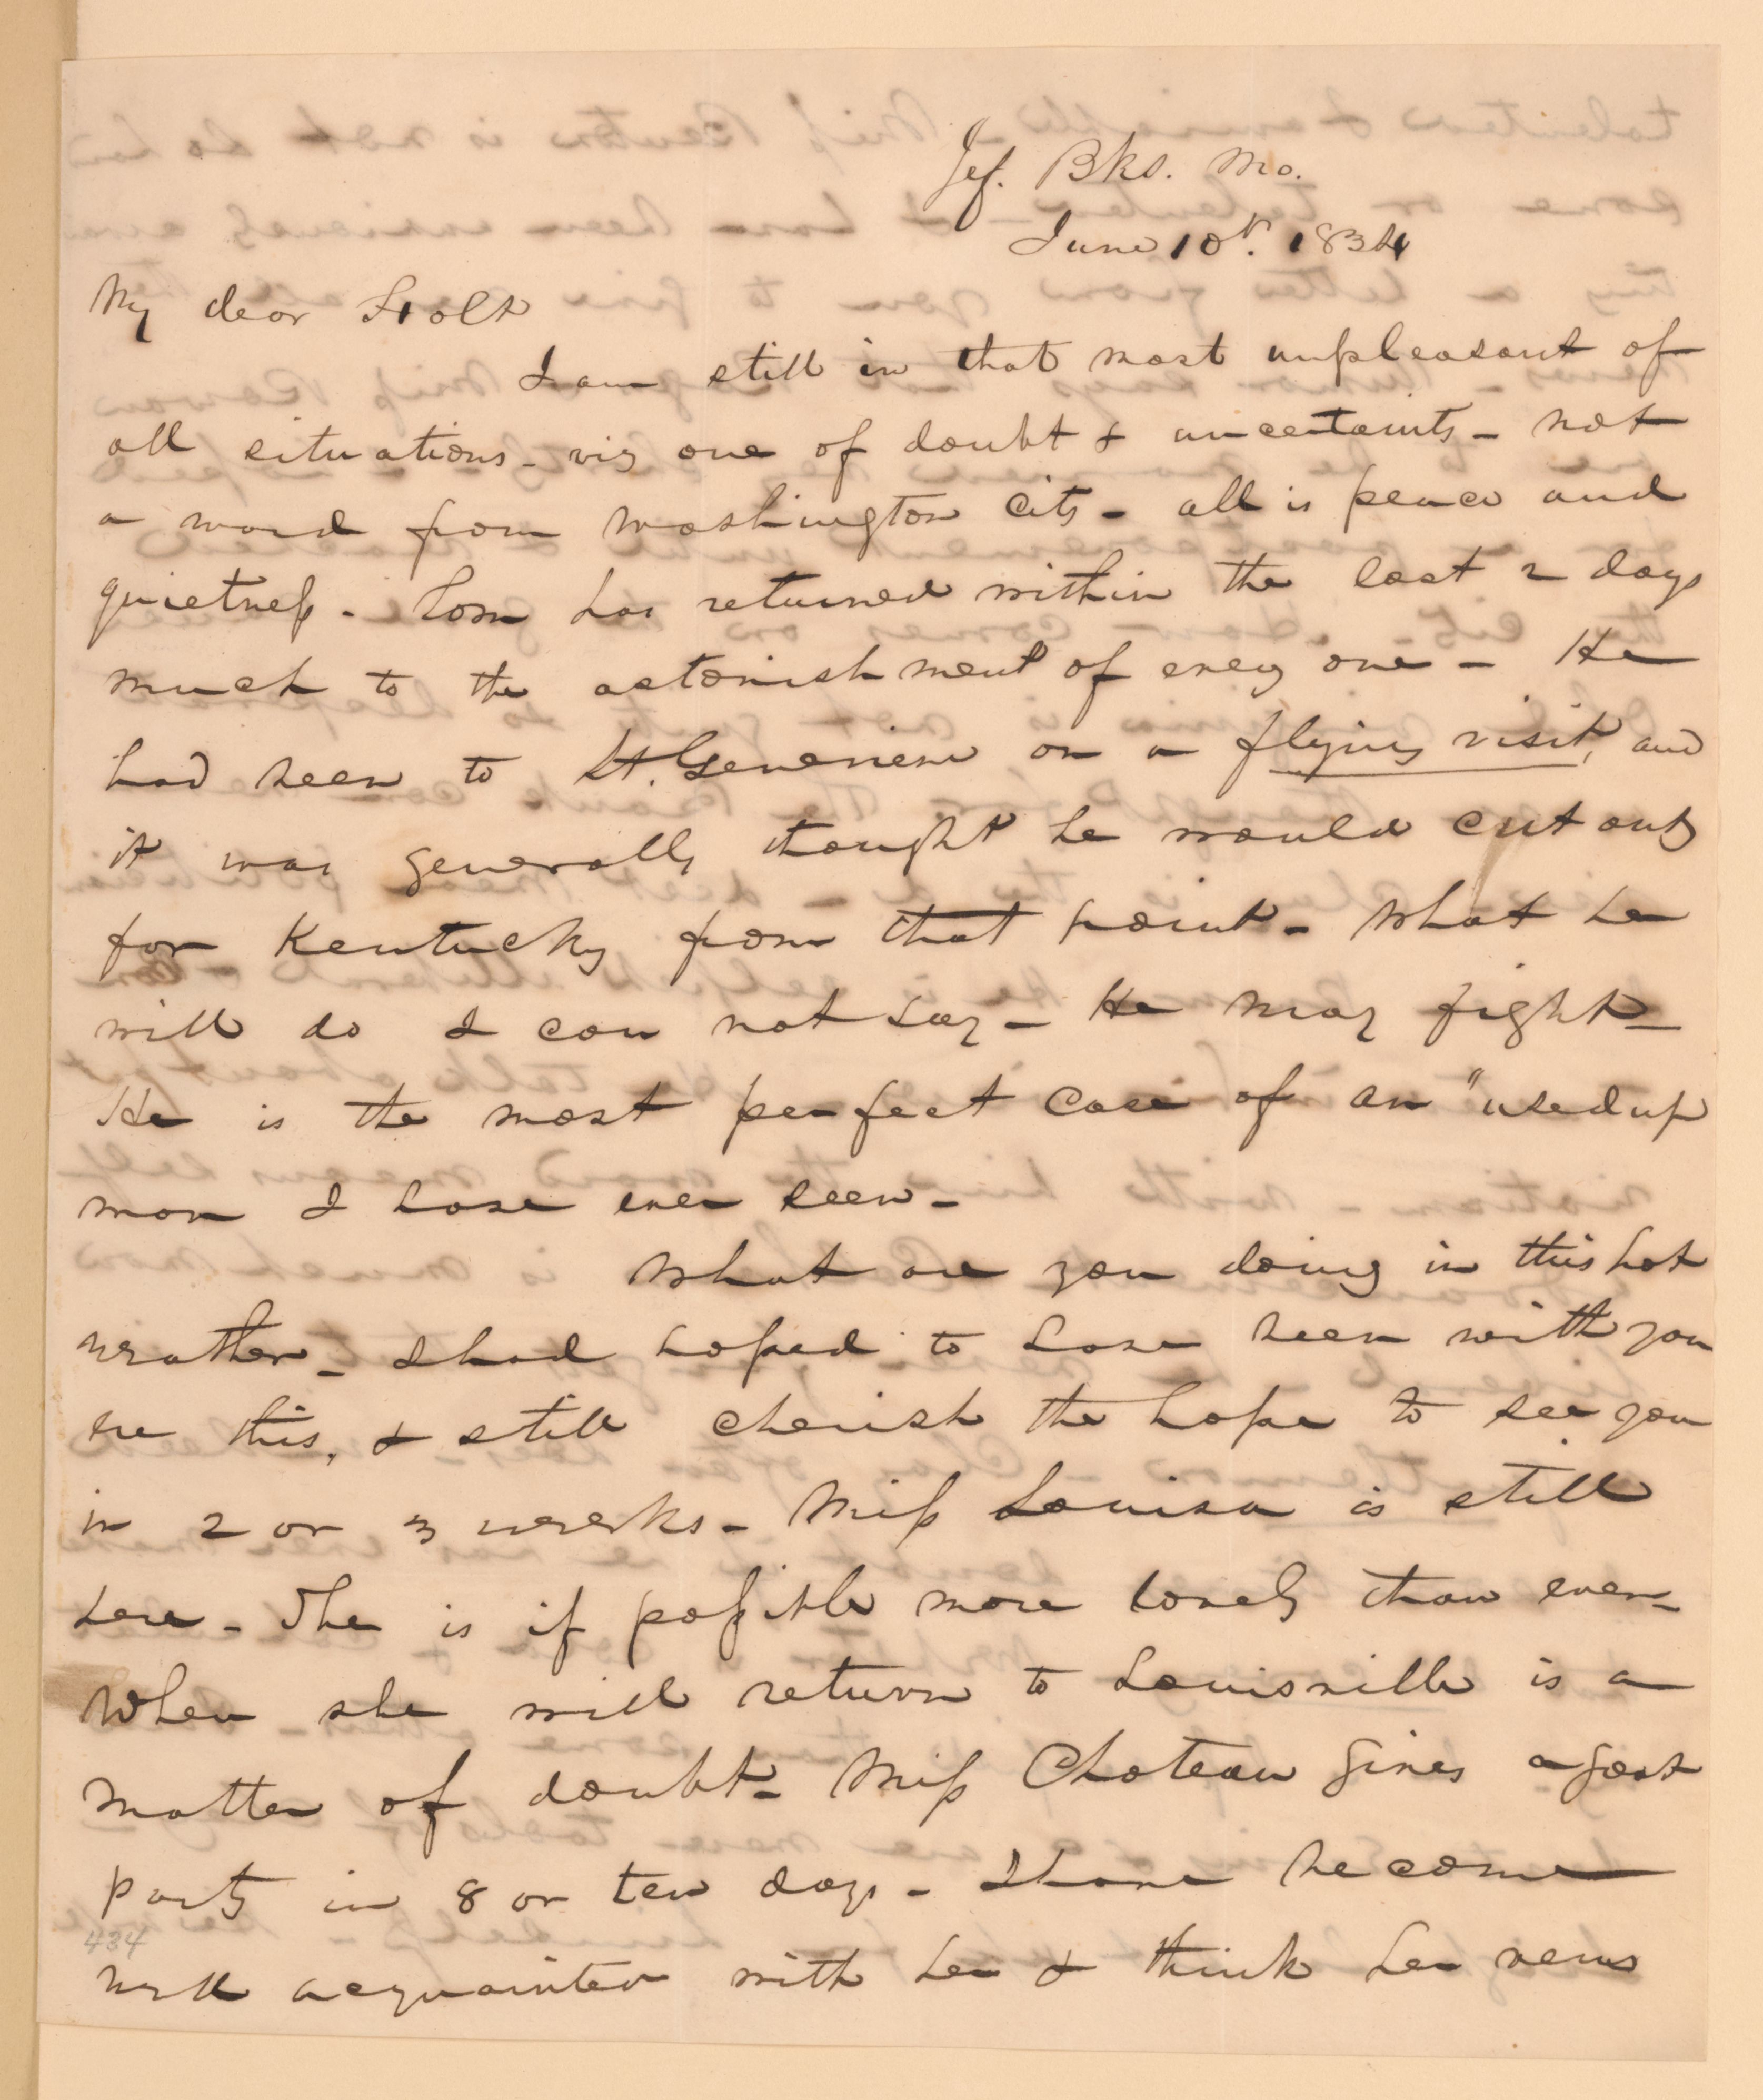 Jef. Bks. Mo.
June 10th. 1834
My dear Holt
I am still in that most unpleasant of
all situations - viz one of doubt & uncertainty - not
a word from Washington City - all is peace and
quietness - Tom has returned within the last 2 days
much to the astonishment of every one - He
had been to St. Genevieve on a flying visit, and
it was generally thought he would cut out
for Kentucky from that point - What he
will do I can not say - He may fight -
He is the most perfect case of an "used up
man I have ever seen -
What are you doing in this hot
weather - I had hoped to have been with you
ere this, & still cherish the hope to see you
in 2 or 3 weeks - Miss Louisa is still
here - She is if possible more lovely than ever -
When she will return to Louisville is a
matter of doubt - Miss Choteau gives a great
party in 8 or ten days - I have become
434
well acquainted with her & think her very